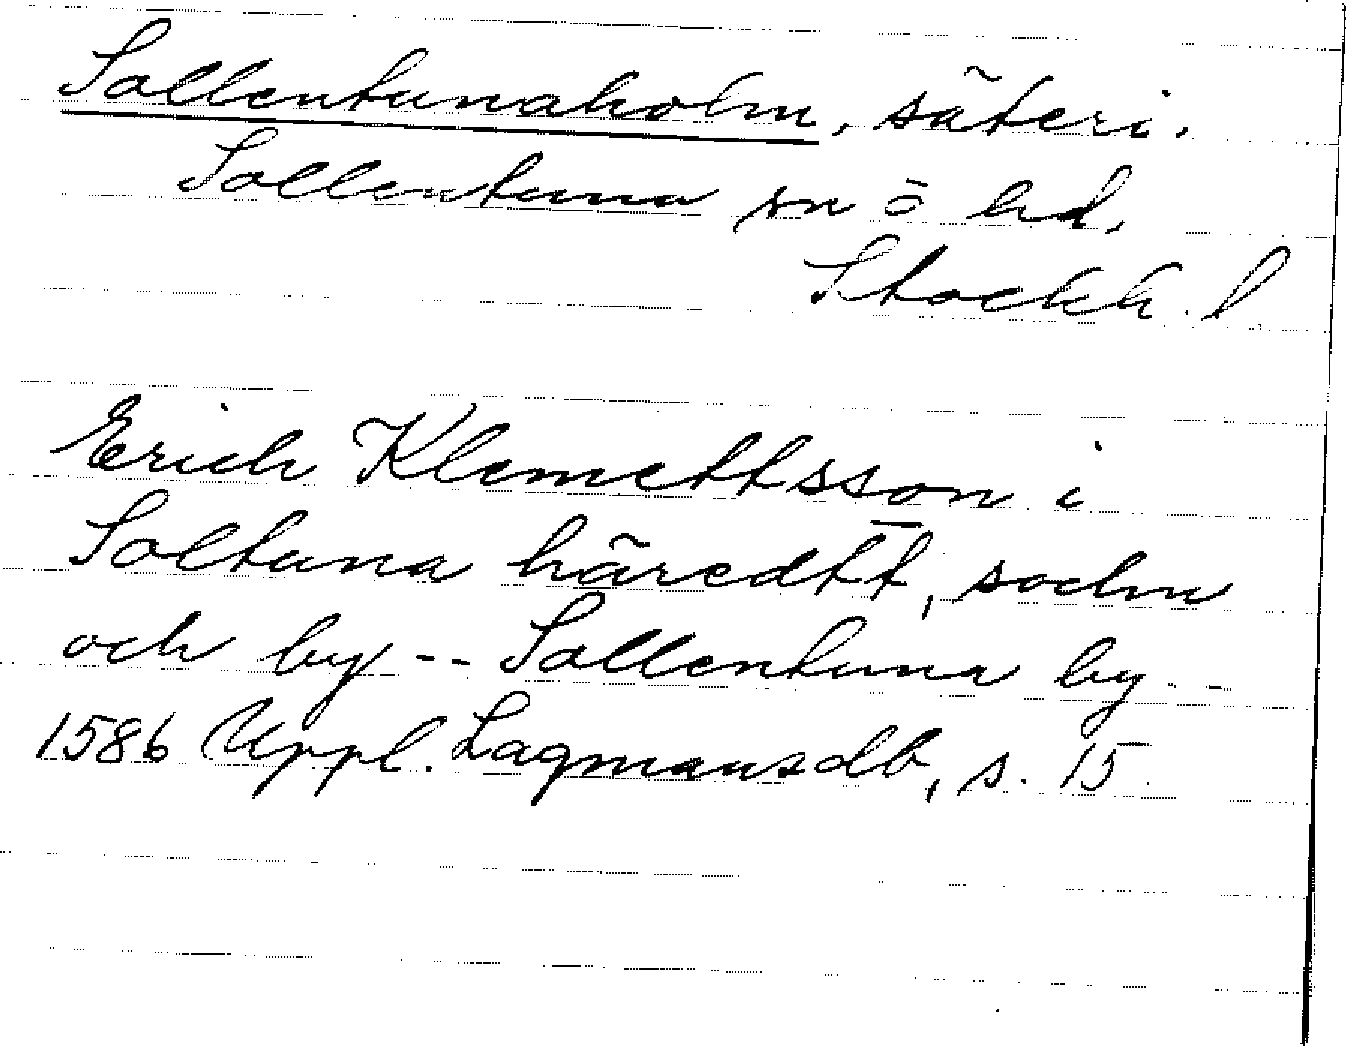 Sollentunaholm, säteri.
Sollentuna sn ō hd,
Stockh. l
Erich Klemettsson i
Soltuna häredtt, sochn
och by -- Sollentuna by --
1586 Uppl. Lagmansdb, s. 15